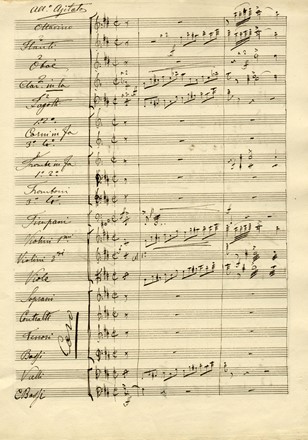 All.º Agitato
Ottavino
Flauti
Oboè
Clar. in la
Fagotti
1º 2º
Corni in fa
3º 4º
Trombe in fa
1º 2º
Tromboni
3º 4º
Timpani
Violini 1mi
Violini 2di
Viole
Soprani
Contralti
Tenori
Bassi
Coro
Celli
C Bassi